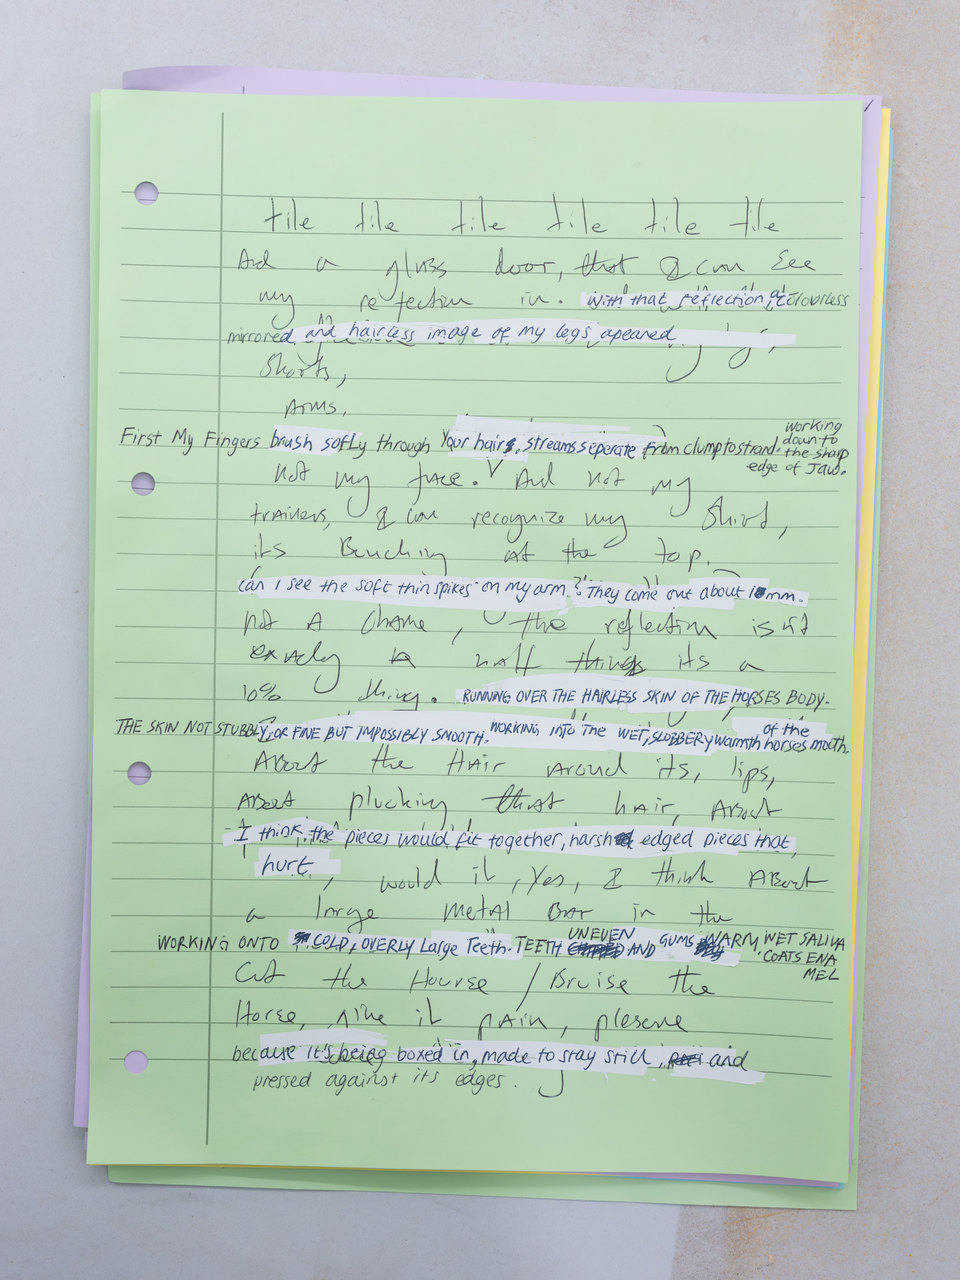 tile tile tile tile tile tile
And a glass door, that I can see
my reflection in. with that reflection, a colourless
mirrored and hairless image of my legs apeared
Shorts,
Arms,
First My Fingers brush softly through Your hairs, streams seperate from clump to strand. working down to the sharp edge of Jaw.
not my face. And not my
trainers, I can recognize my Shirt,
its Bunching At the top.
can I see the soft thin spikes on my arm? They come out about 10mm.
not A Chame, the reflection isnt
exactly a half things its a
10% thing. RUNNING OVER THE HAIRLESS SKIN OF THE HORSES BODY.
THE SKIN NOT STUBBLY, OR FINE BUT IMPOSSIBLY SMOOTH. WORKING INTO THE WET, SLOBBERY warmth of the horses mouth.
About the Hair around its, lips,
About plucking that hair, About
I think the pieces would fit together, harsh edged pieces that
hurt
, would it, Yes, I think About
a large Metal Bar in the
WORKING ONTO COLD, OVERLY Large Teeth. TEETH UNEVEN AND GUMS WARM, WET SALIVA COATS ENAMEL
Cut the Hourse / Bruise the
Horse, give it pain, plesure
because it's being boxed in, made to stay still, and
pressed against its edges.